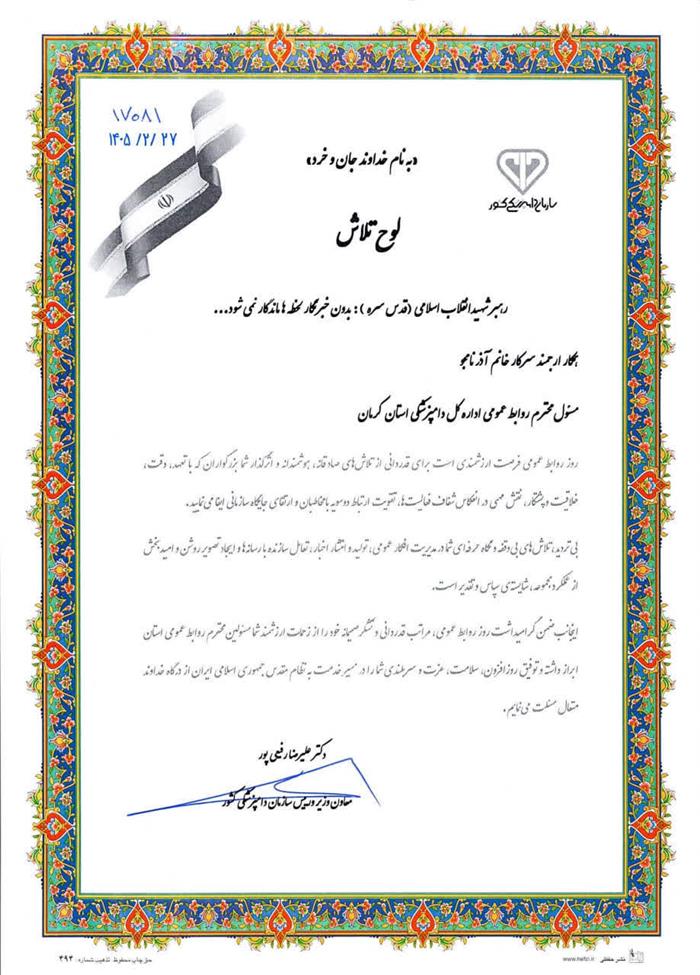 ۱۷۵۸۱
۱۴۰۵/۲/۲۷
«به نام خداوند جان و خرد»
سازمان دامپزشکی کشور
لوح تلاش
رهبر شهید انقلاب اسلامی (قدس سره): بدون خبرنگار لحظه ها ماندگار نمی شود...
همکار ارجمند سرکار خانم آذر نامجو
مسئول محترم روابط عمومی اداره کل دامپزشکی استان کرمان
روز روابط عمومی فرصت ارزشمندی است برای قدردانی از تلاش‌های صادقانه، هوشمندانه و اثرگذار شما بزرگواران که با تعهد، دقت،
خلاقیت و پشتکار، نقش مهمی در انعکاس شفاف فعالیت‌ها، تقویت ارتباط دوسویه با مخاطبان و ارتقای جایگاه سازمانی ایفا می نمایید.
بی تردید، تلاش‌های بی وقفه و نگاه حرفه ای شما در مدیریت افکار عمومی، تولید و انتشار اخبار، تعامل سازنده با رسانه‌ها و ایجاد تصویر روشن و امیدبخش
از عملکرد مجموعه، شایسته‌ی سپاس و تقدیر است.
اینجانب ضمن گرامیداشت روز روابط عمومی، مراتب قدردانی و تشکر صمیمانه خود را از زحمات ارزشمند شما مسئولین محترم روابط عمومی استان
ابراز داشته و توفیق روزافزون، سلامت، عزت و سربلندی شما را در مسیر خدمت به نظام مقدس جمهوری اسلامی ایران از درگاه خداوند
متعال مسئلت می نمایم.
دکتر علیرضا رفیعی پور
معاون وزیر و رییس سازمان دامپزشکی کشور
حق چاپ محفوظ. تذهیب شماره: ۴۹۴
www.nefzi.ir